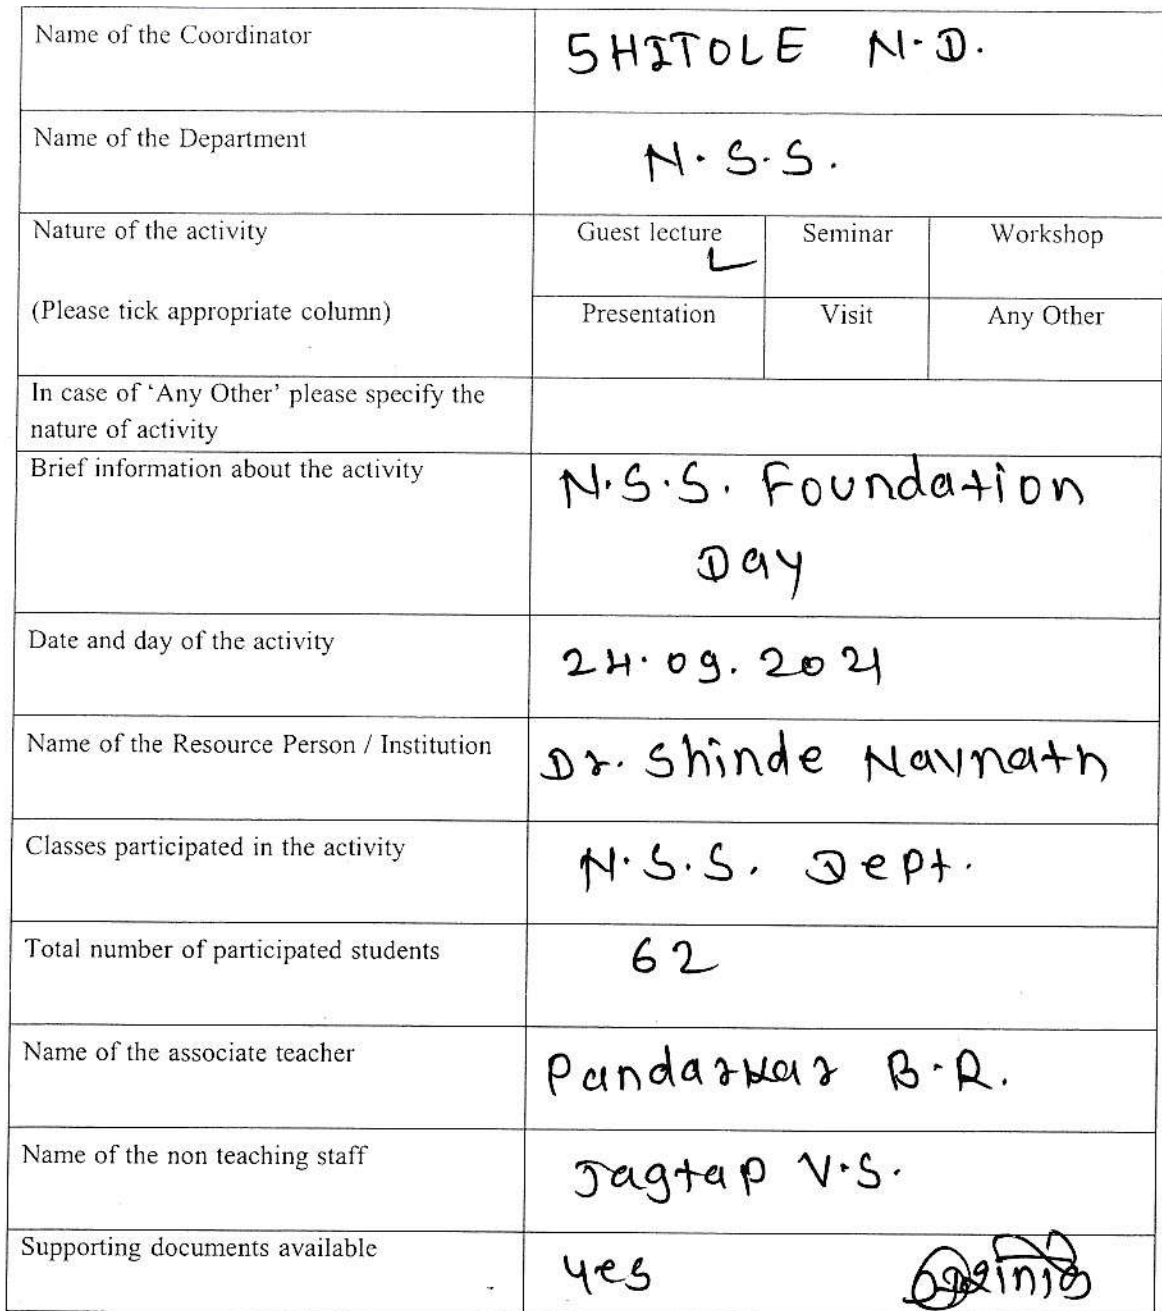 Name of the Coordinator
SHITOLE N.D.
Name of the Department
N.S.S.
Nature of the activity
Guest lecture Seminar Workshop
(Please tick appropriate column)
Presentation Visit Any Other
In case of ‘Any Other’ please specify the
nature of activity
Brief information about the activity
N.S.S. Foundation
Day
Date and day of the activity
24.09.2021
Name of the Resource Person / Institution
Dr. Shinde Navnath
Classes participated in the activity
N.S.S. Dept.
Total number of participated students
62
Name of the associate teacher
Pandarkar B.R.
Name of the non teaching staff
Jagtap V.S.
Supporting documents available
yes